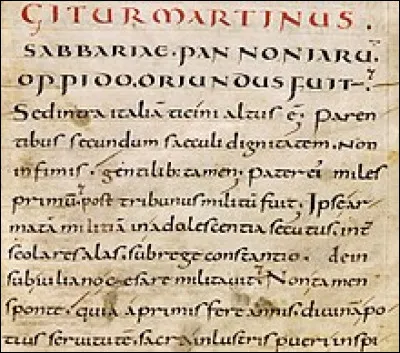 GITUR MARTINUS.
SABBARIAE. PANNONIARU.
OPPIDO. ORIUNDUS FUIT.
Sed intra italiā ticini altus ē. Paren
tibus secundum saeculi dignitatem. Non
infimis. gentilib; tamen. Pater ei' miles
primū. post tribunus militū fuit. Ipse ar
matā militiā in adolescentia secutus. int̄
scolares alas. sub rege constantio. dein
sub iuliano cesare militavit. Non tamen
sponte. quia a primis fere annis. divinā po
tius servitutē. sacra inlustris pueri inspi